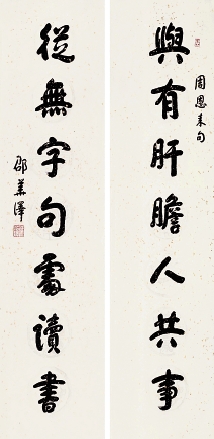 與有肝膽人共事
周恩来句
從無字句處讀書
邵華澤